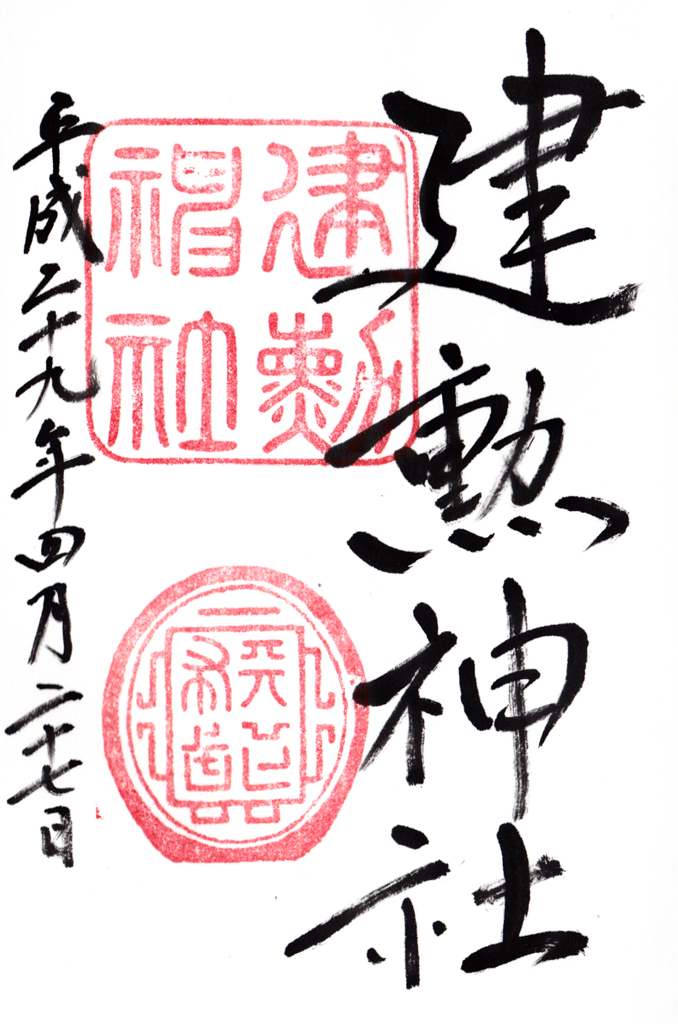 建勲神社
建勲
神社
平成二十九年四月二十七日